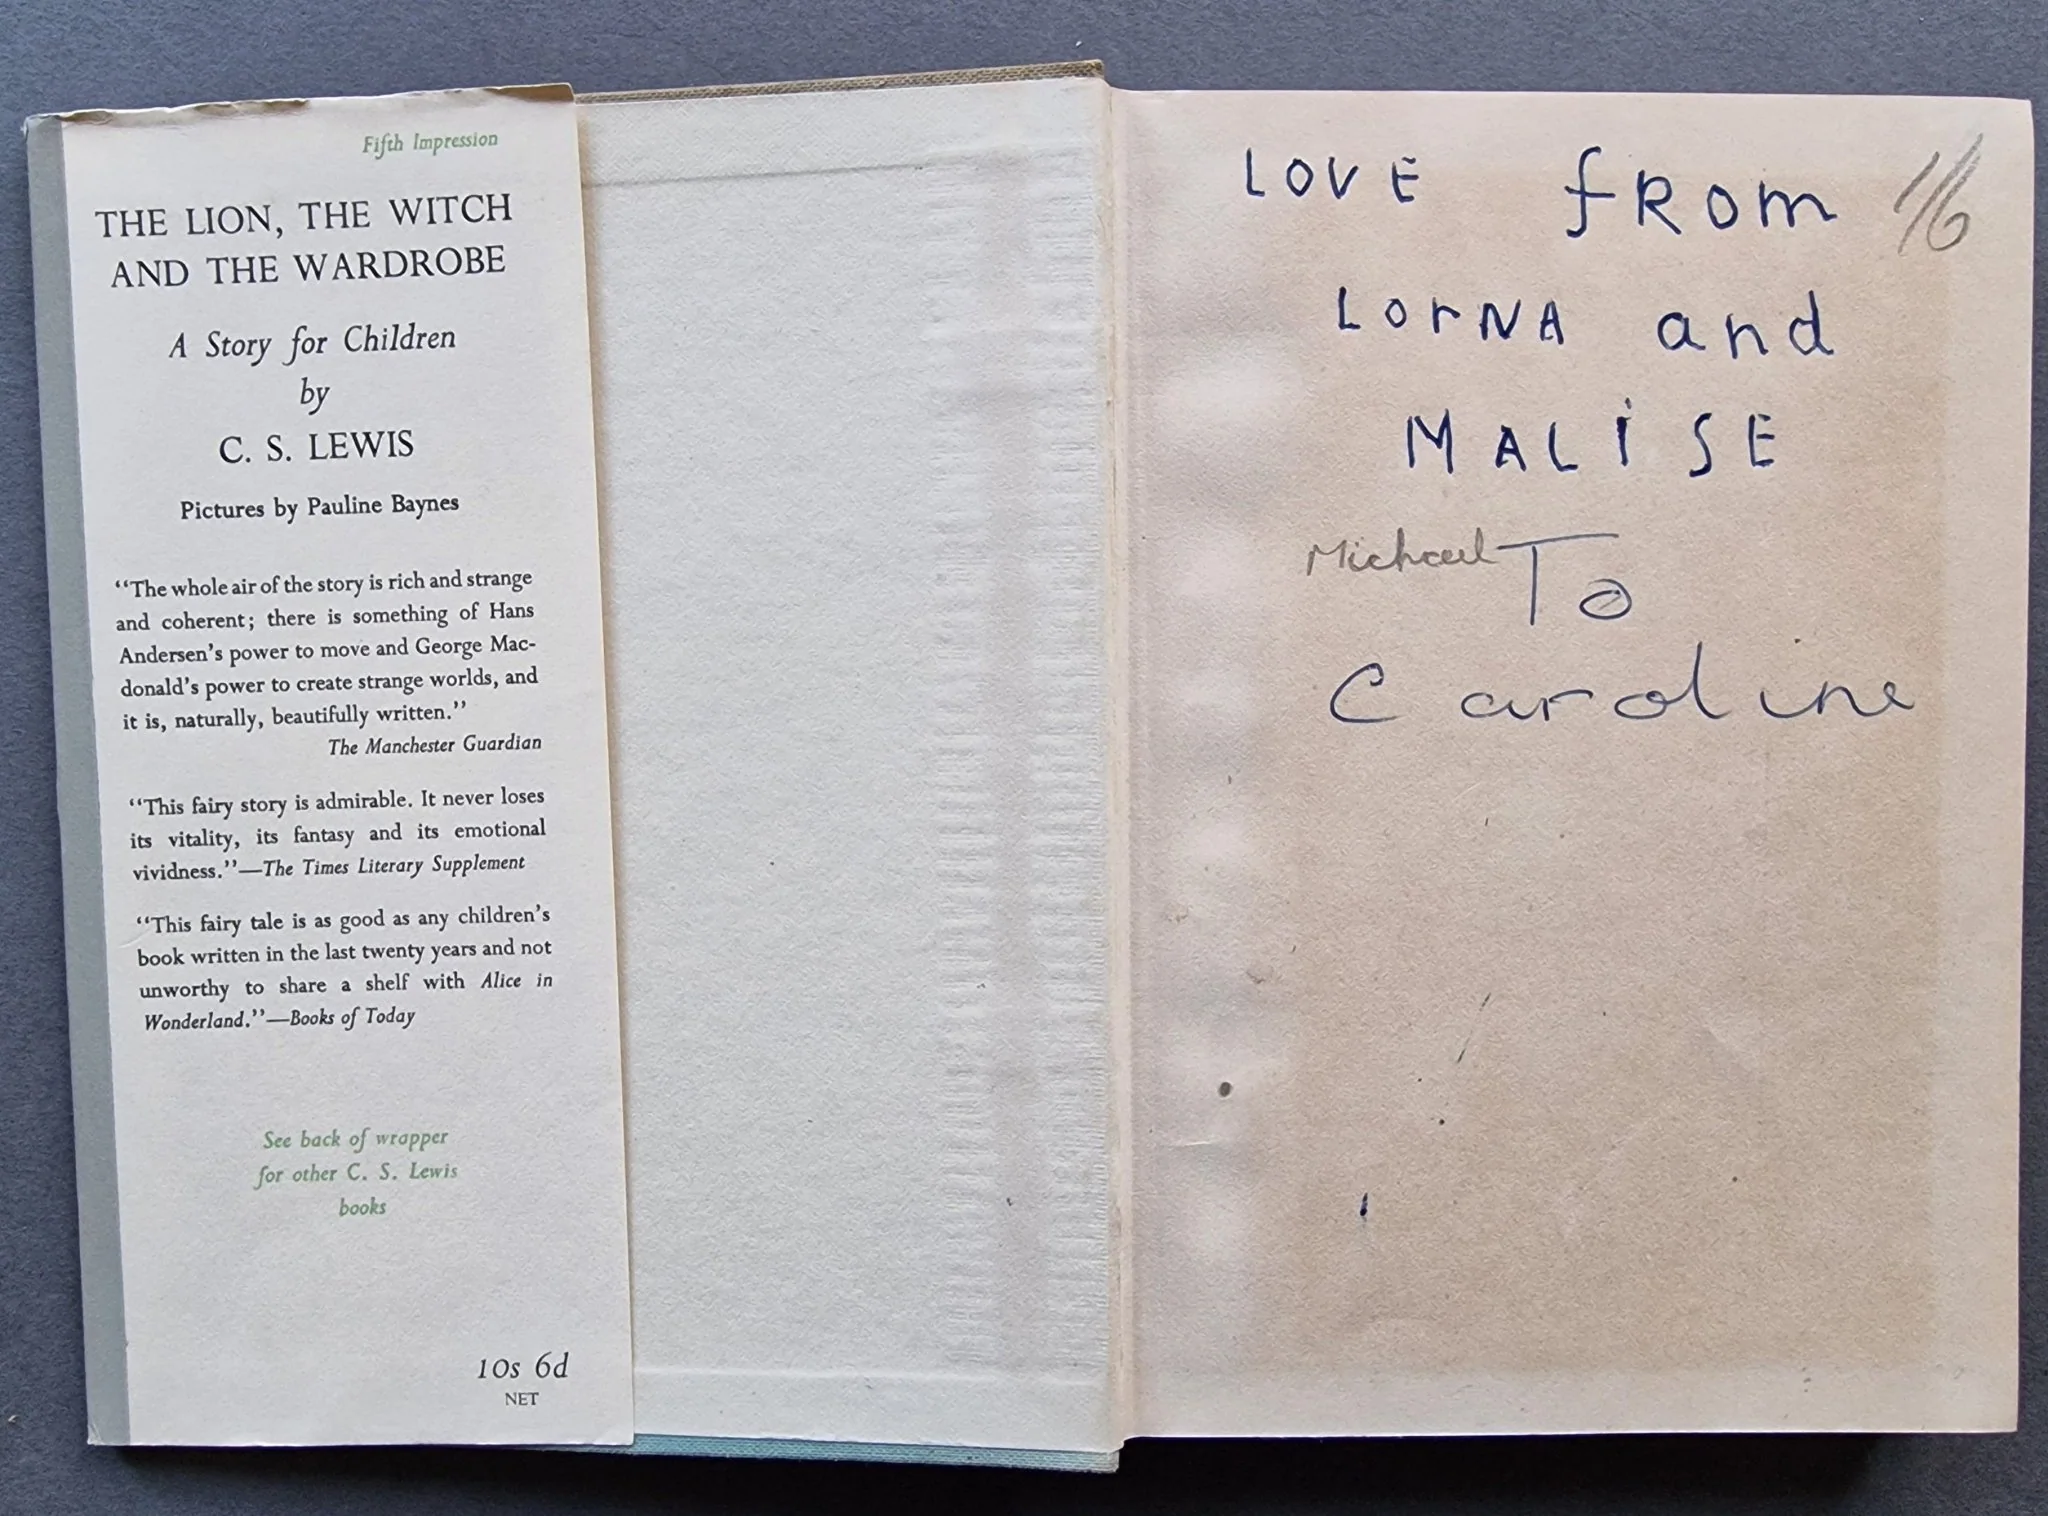 Fifth Impression
THE LION, THE WITCH
AND THE WARDROBE
A Story for Children
by
C. S. LEWIS
Pictures by Pauline Baynes
“The whole air of the story is rich and strange
and coherent; there is something of Hans
Andersen’s power to move and George Mac-
donald’s power to create strange worlds, and
it is, naturally, beautifully written.”
The Manchester Guardian
“This fairy story is admirable. It never loses
its vitality, its fantasy and its emotional
vividness.”—The Times Literary Supplement
“This fairy tale is as good as any children’s
book written in the last twenty years and not
unworthy to share a shelf with Alice in
Wonderland.”—Books of Today
See back of wrapper
for other C. S. Lewis
books
10s 6d
NET
LOVE fROm 1/6
LOrNA and
MALiSE
Michael To
Caroline